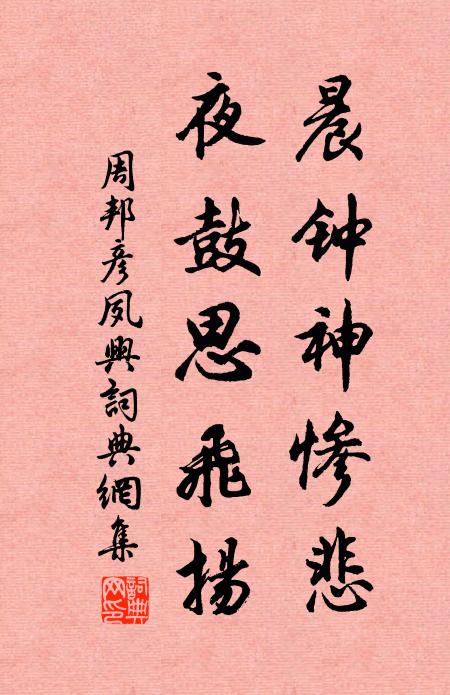 晨钟神惨悲
夜鼓思飛揚
周邦彦夙興詞典網集
詞典
网印